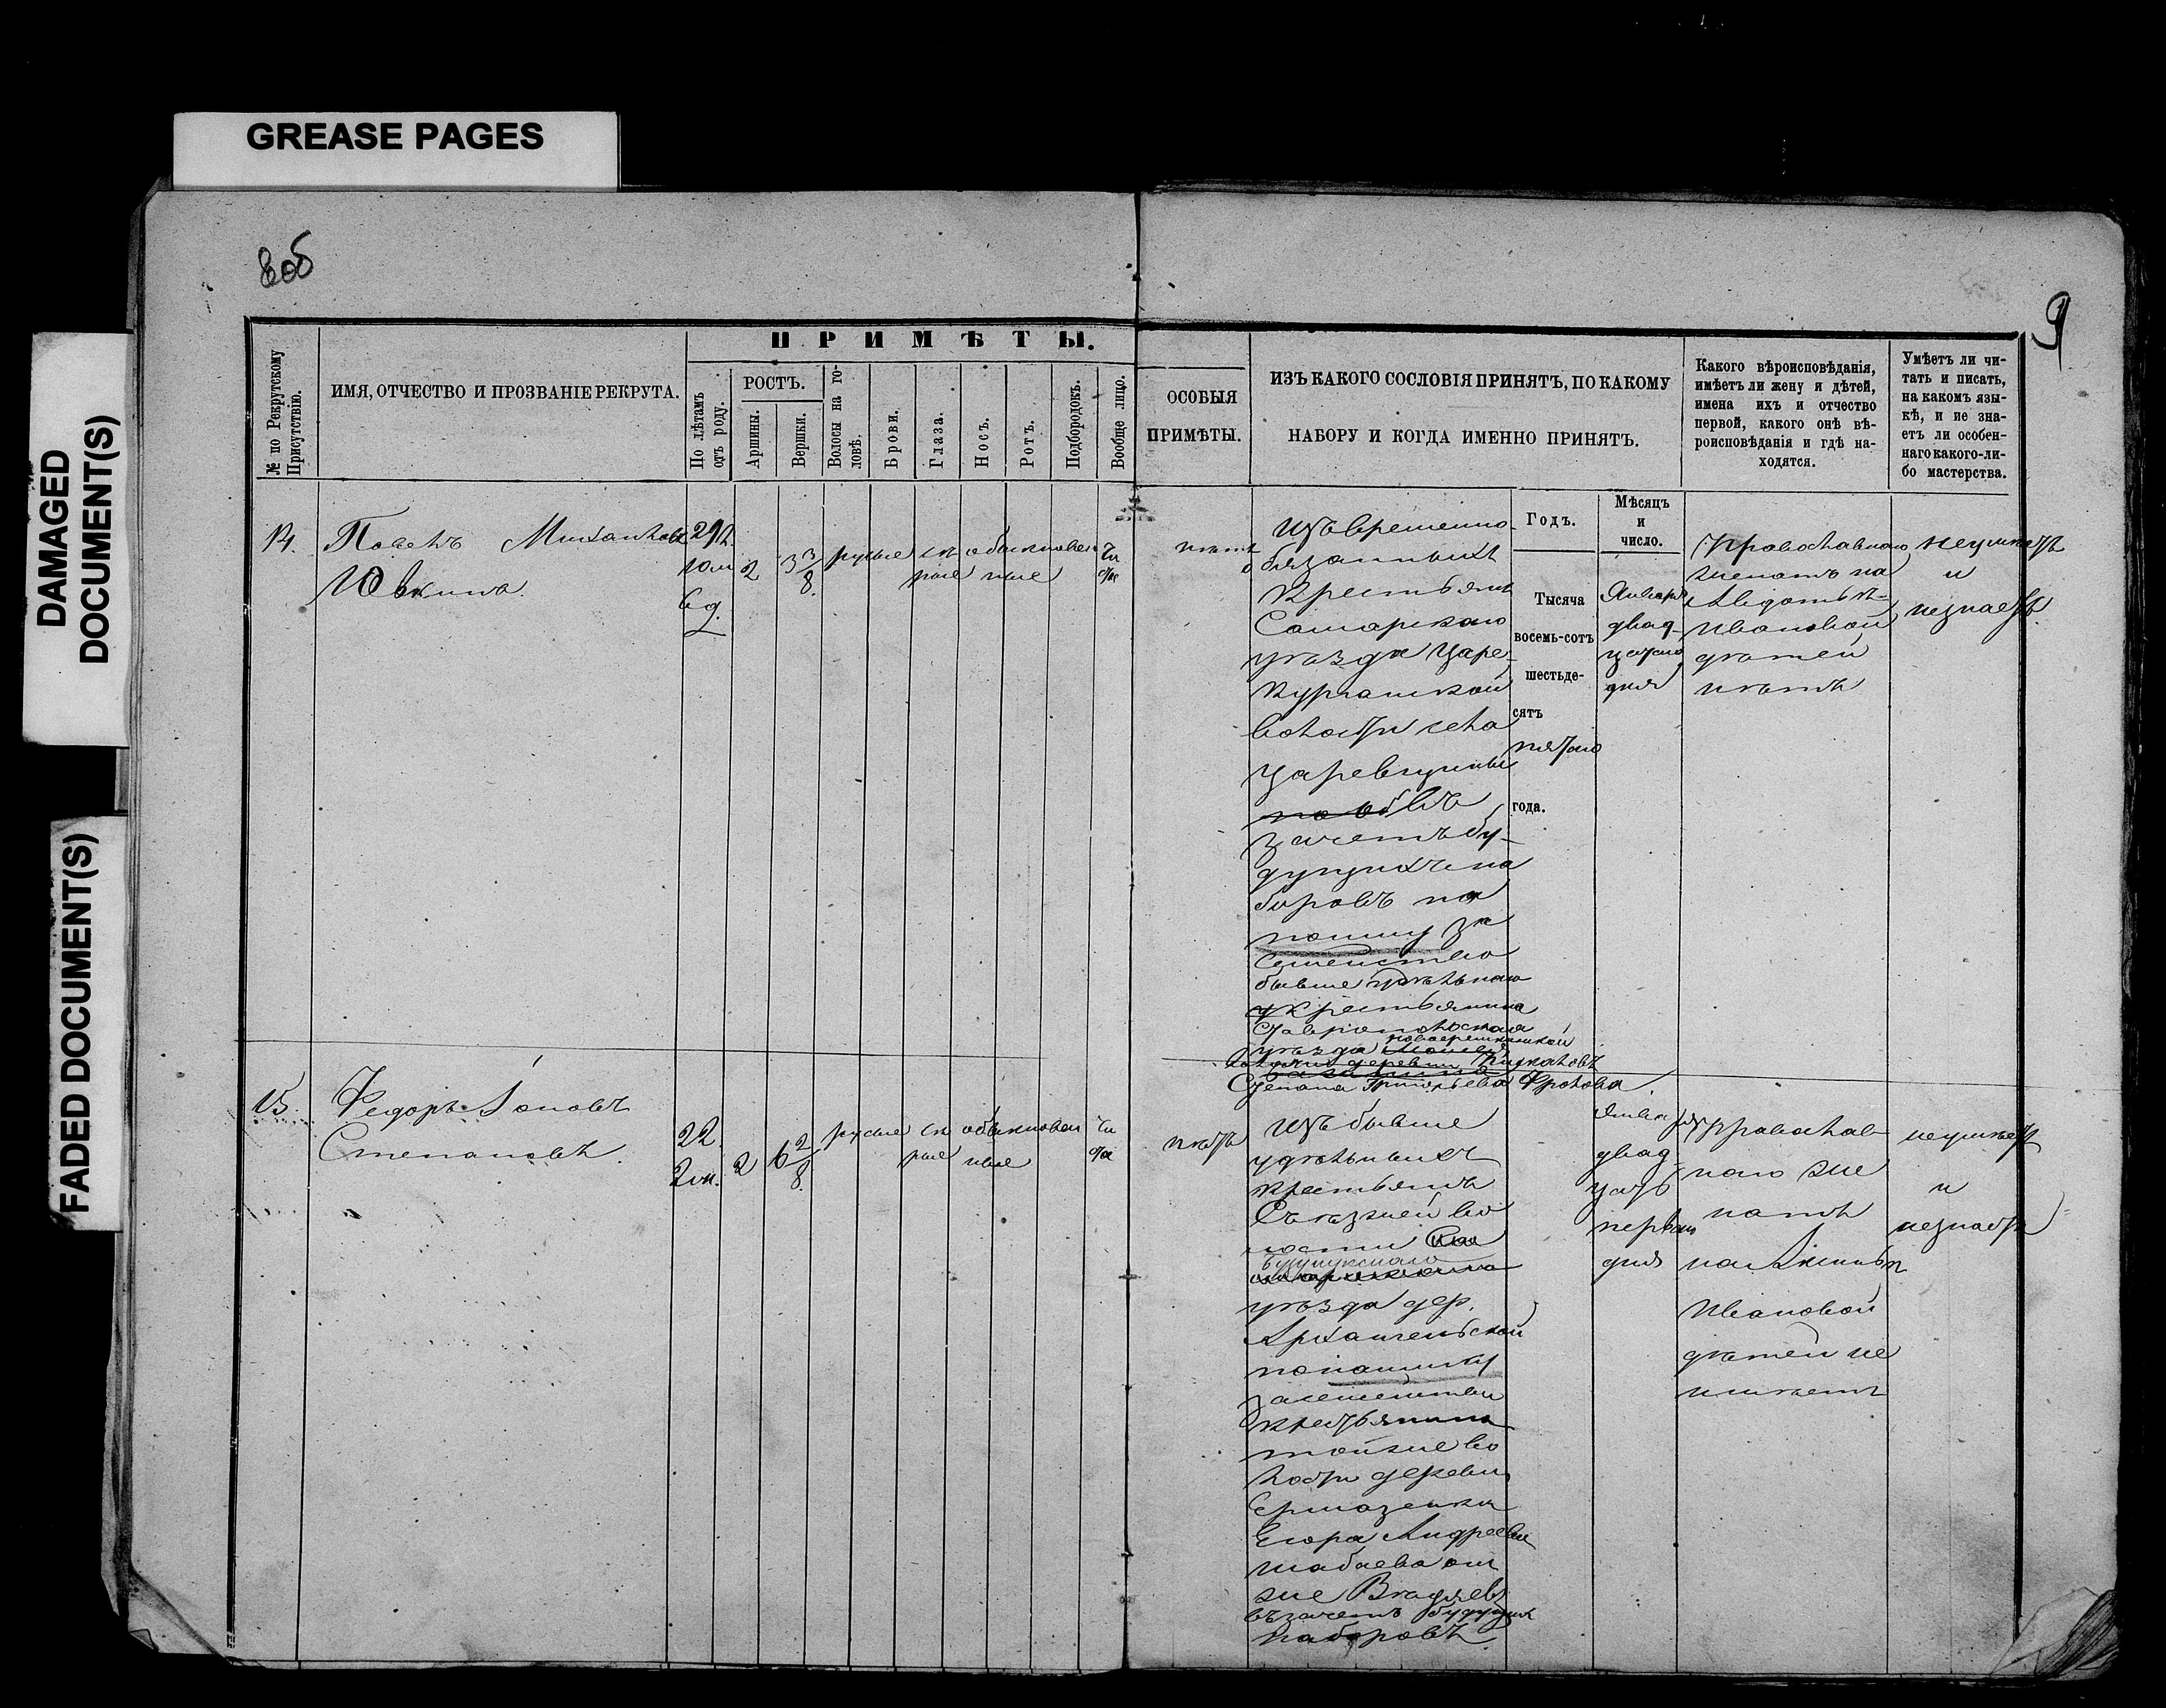 GREASE PAGES
DAMAGED
DOCUMENT(S)
FADED DOCUMENT(S)
8об
9
№ по Рекрутскому
Присутствію.
ИМЯ, ОТЧЕСТВО И ПРОЗВАНІЕ РЕКРУТА.
ПРИМѢТЫ.
По лѣтамъ
отъ роду.
РОСТЪ.
Аршины.
Вершки.
Волосы на го-
ловѣ.
Брови.
Глаза.
Носъ.
Ротъ.
Подбородокъ.
Вообще лицо.
ОСОБЫЯ
ПРИМѢТЫ.
ИЗЪ КАКОГО СОСЛОВІЯ ПРИНЯТЪ, ПО КАКОМУ
НАБОРУ И КОГДА ИМЕННО ПРИНЯТЪ.
Какого вѣроисповѣданія,
имѣетъ ли жену и дѣтей,
имена ихъ и отчество
первой, какого онѣ вѣ-
роисповѣданія и гдѣ на-
ходятся.
Умѣетъ ли чи-
тать и писать,
на какомъ язы-
кѣ, и не зна-
етъ ли особен-
наго какого-ли-
бо мастерства.
Годъ.
Мѣсяцъ
и
число.
14.
Павелъ Михайловъ
Ювкинъ.
29л.
10м
6д.
2
3 3/8.
русые
сѣ
рые
обыкновен
ные
чи
стое
нѣтъ
Изъ временно-
обязанныхъ
крестьянъ
Самарскаго
уѣзда Царе-
курганской
волости села
Царевщины
въ
зачетъ бу-
дущихъ на
боровъ по
найму за
семейство
бывше удѣльнаго
крестьянина
Ставропольскаго
уѣзда
деревни
Степана Григорьева Фролова
Тысяча
восемь-сотъ
шестьде-
сятъ
пятаго
года.
Января
двад-
цатаго
дня
Православнаго
женатъ на
Авдотьѣ
Ивановой
дѣтей
нѣтъ
неумѣетъ
и
незнаетъ.
15.
Федоръ Іоновъ
Степановъ.
22.
2м.
2
6 2/8.
русые
сѣ
рые
обыкновен
ные
чи
стое
нѣтъ
Изъ бывше
удѣльныхъ
крестьянъ
Съѣзжей во
лости
Бузулукскаго
уѣзда дер.
Архангельской
по найму
за семейство
крестьянина
тойже во
лости деревни
Егора Андреева
Шабаева онъ
же
въ зачетъ будущихъ
наборовъ
Января
двад-
цать
перваго
дня
Православ
наго же
натъ
на
Ивановой
дѣтей не
имѣетъ
неумѣетъ
и
незнаетъ